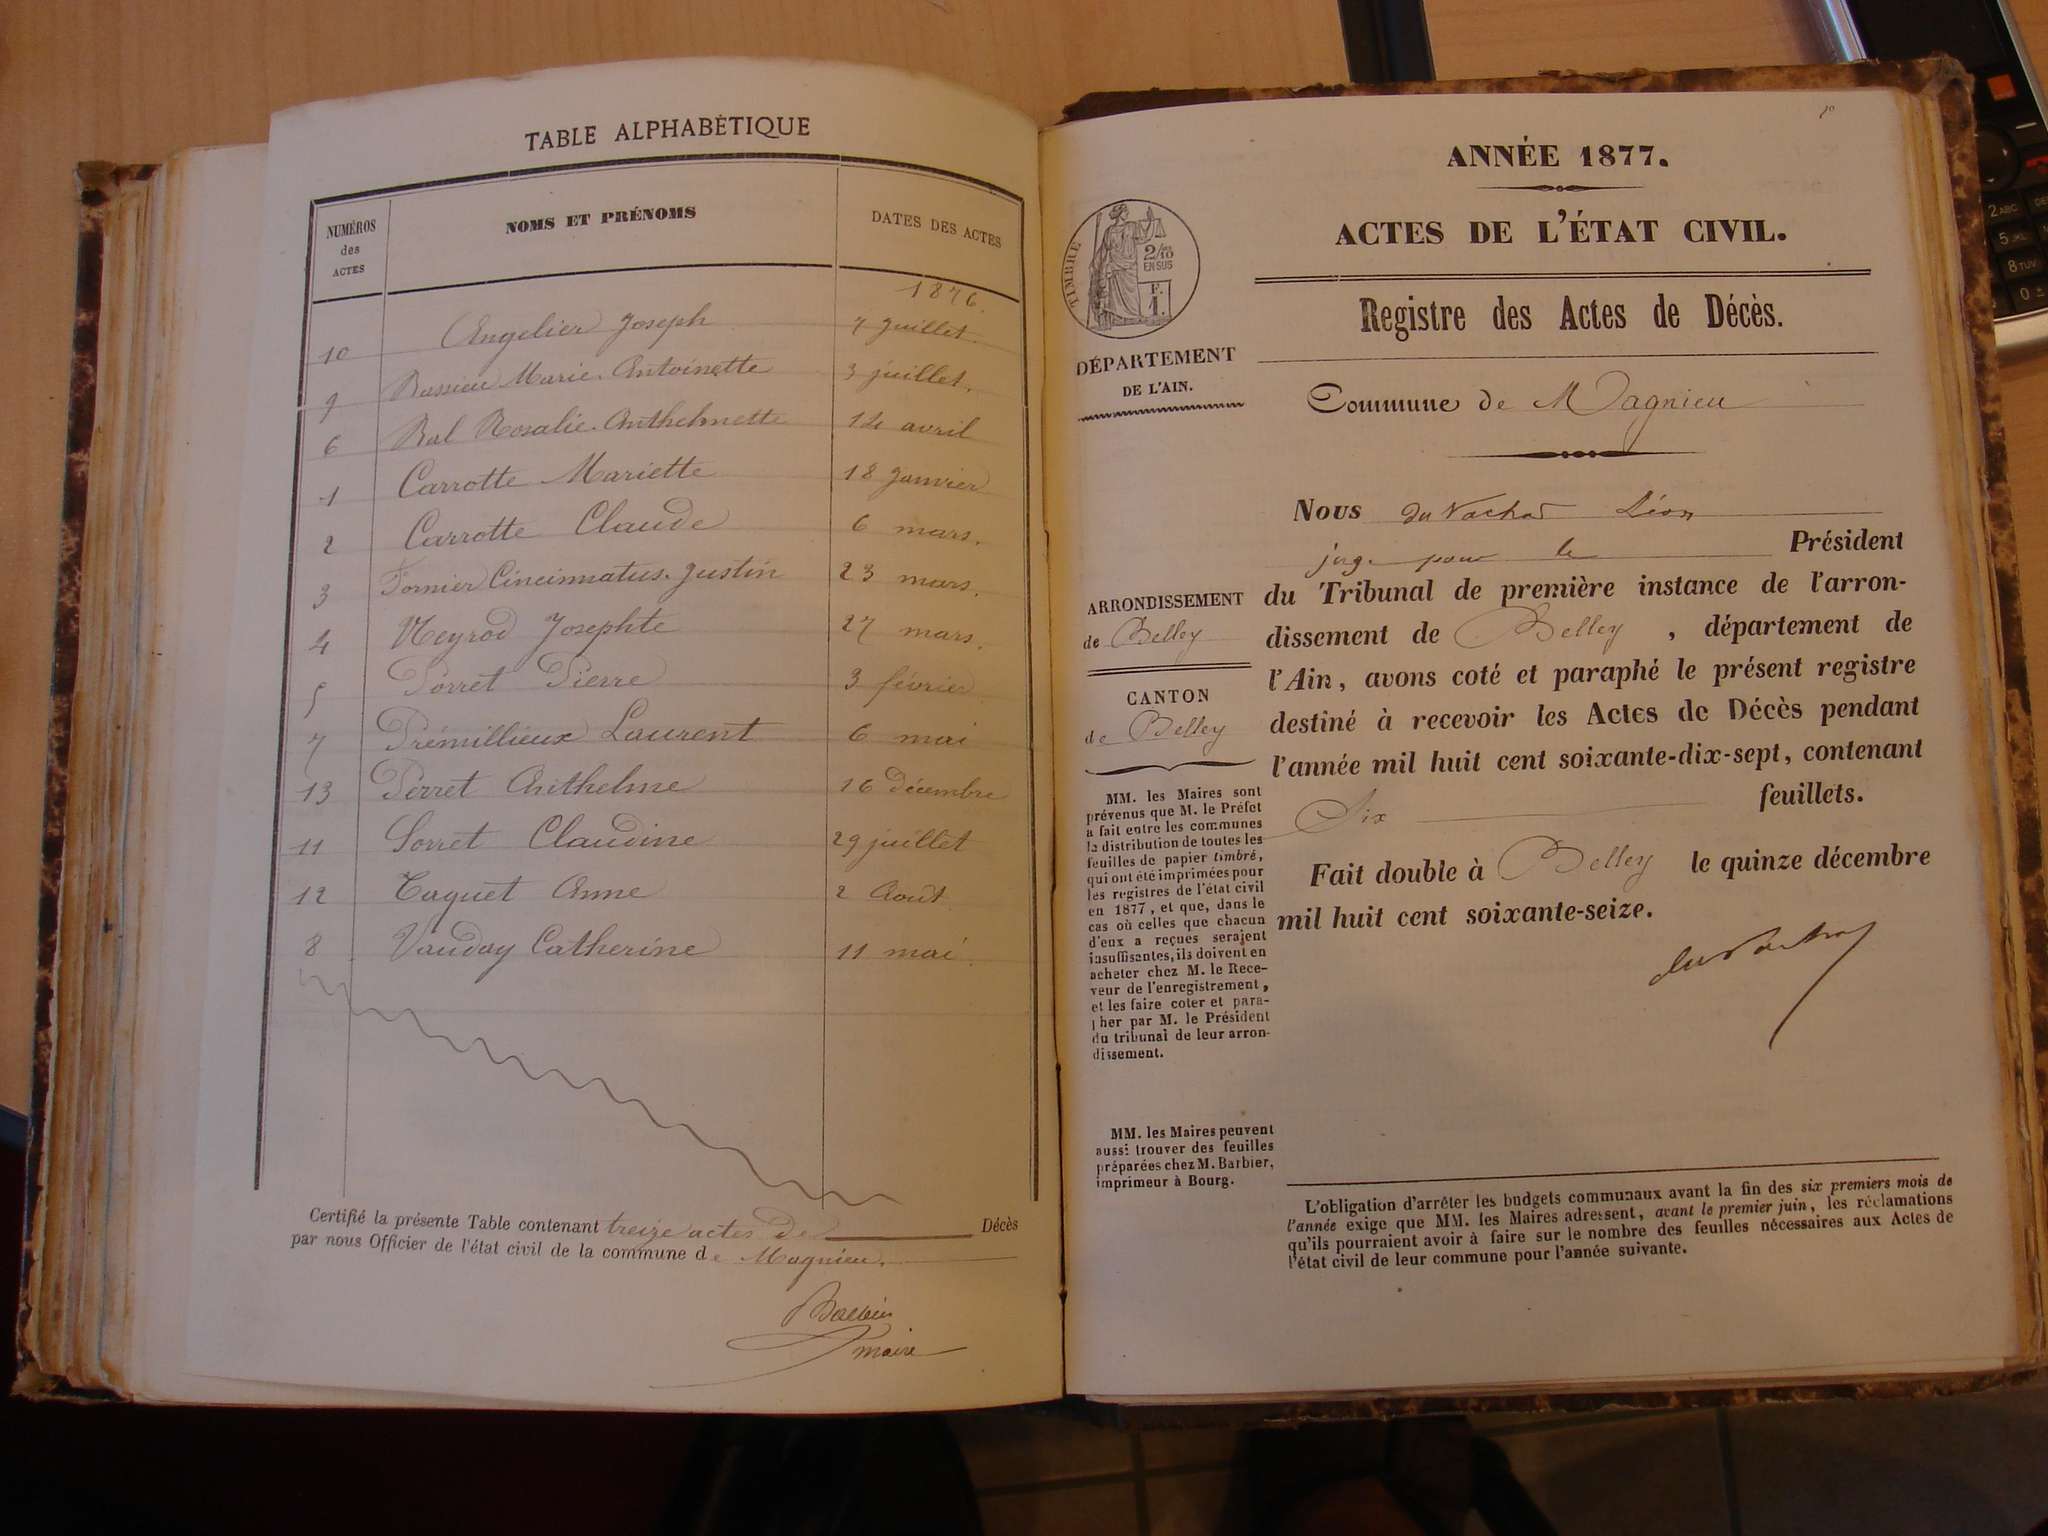 TABLE ALPHABÉTIQUE
NUMÉROS des ACTES NOMS ET PRÉNOMS DATES DES ACTES
1876.
10 Engelier Joseph 7 Juillet.
9 Bussieu Marie-Antoinette 3 juillet.
6 Bal Rosalie-Anthelmette 14 avril
1 Carrotte Mariette 18 Janvier
2 Carrotte Claude 6 mars.
3 Fornier Cincinnatus-Justin 23 mars.
4 Neyrod Josephte 27 mars.
5 Perret Pierre 3 février
7 Prémillieux Laurent 6 mai
13 Perret Anthelme 16 décembre
11 Sorret Claudine 29 juillet
12 Taquet Anne 2 Août
8 Vauday Catherine 11 mai.
Certifié la présente Table contenant treize actes de Décès
par nous Officier de l'état civil de la commune de Magnieu.
maire
ANNÉE 1877.
ACTES DE L'ÉTAT CIVIL.
TIMBRE
2/10
EN SUS
F.
1.
Registre des Actes de Décès.
DÉPARTEMENT
DE L'AIN.
Commune de Magnieu
Nous du Vachat Léon
juge pour le Président
du Tribunal de première instance de l'arron-
dissement de Belley, département de
l'Ain, avons coté et paraphé le présent registre
destiné à recevoir les Actes de Décès pendant
l'année mil huit cent soixante-dix-sept, contenant
Six feuillets.
Fait double à Belley le quinze décembre
mil huit cent soixante-seize.
du Vachat
ARRONDISSEMENT
de Belley
CANTON
de Belley
MM. les Maires sont
prévenus que M. le Préfet
a fait entre les communes
la distribution de toutes les
feuilles de papier timbré,
qui ont été imprimées pour
les registres de l'état civil
en 1877, et que, dans le
cas où celles que chacun
d'eux a reçues seraient
insuffisantes, ils doivent en
acheter chez M. le Rece-
veur de l'enregistrement,
et les faire coter et para-
pher par M. le Président
du tribunal de leur arron-
dissement.
MM. les Maires peuvent
aussi trouver des feuilles
préparées chez M. Barbier,
imprimeur à Bourg.
L'obligation d'arrêter les budgets communaux avant la fin des six premiers mois de
l'année exige que MM. les Maires adressent, avant le premier juin, les réclamations
qu'ils pourraient avoir à faire sur le nombre des feuilles nécessaires aux Actes de
l'état civil de leur commune pour l'année suivante.
2 ABC
5 JKL
8 TUV
0 ±